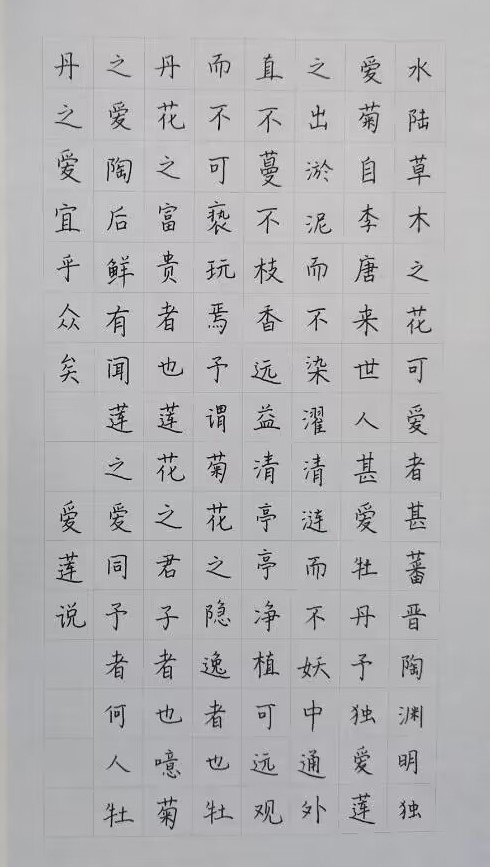 水陆草木之花可爱者甚蕃晋陶渊明独
爱菊自李唐来世人甚爱牡丹予独爱莲
之出淤泥而不染濯清涟而不妖中通外
直不蔓不枝香远益清亭亭净植可远观
而不可亵玩焉予谓菊花之隐逸者也牡
丹花之富贵者也莲花之君子者也噫菊
之爱陶后鲜有闻莲之爱同予者何人牡
丹之爱宜乎众矣 爱莲说